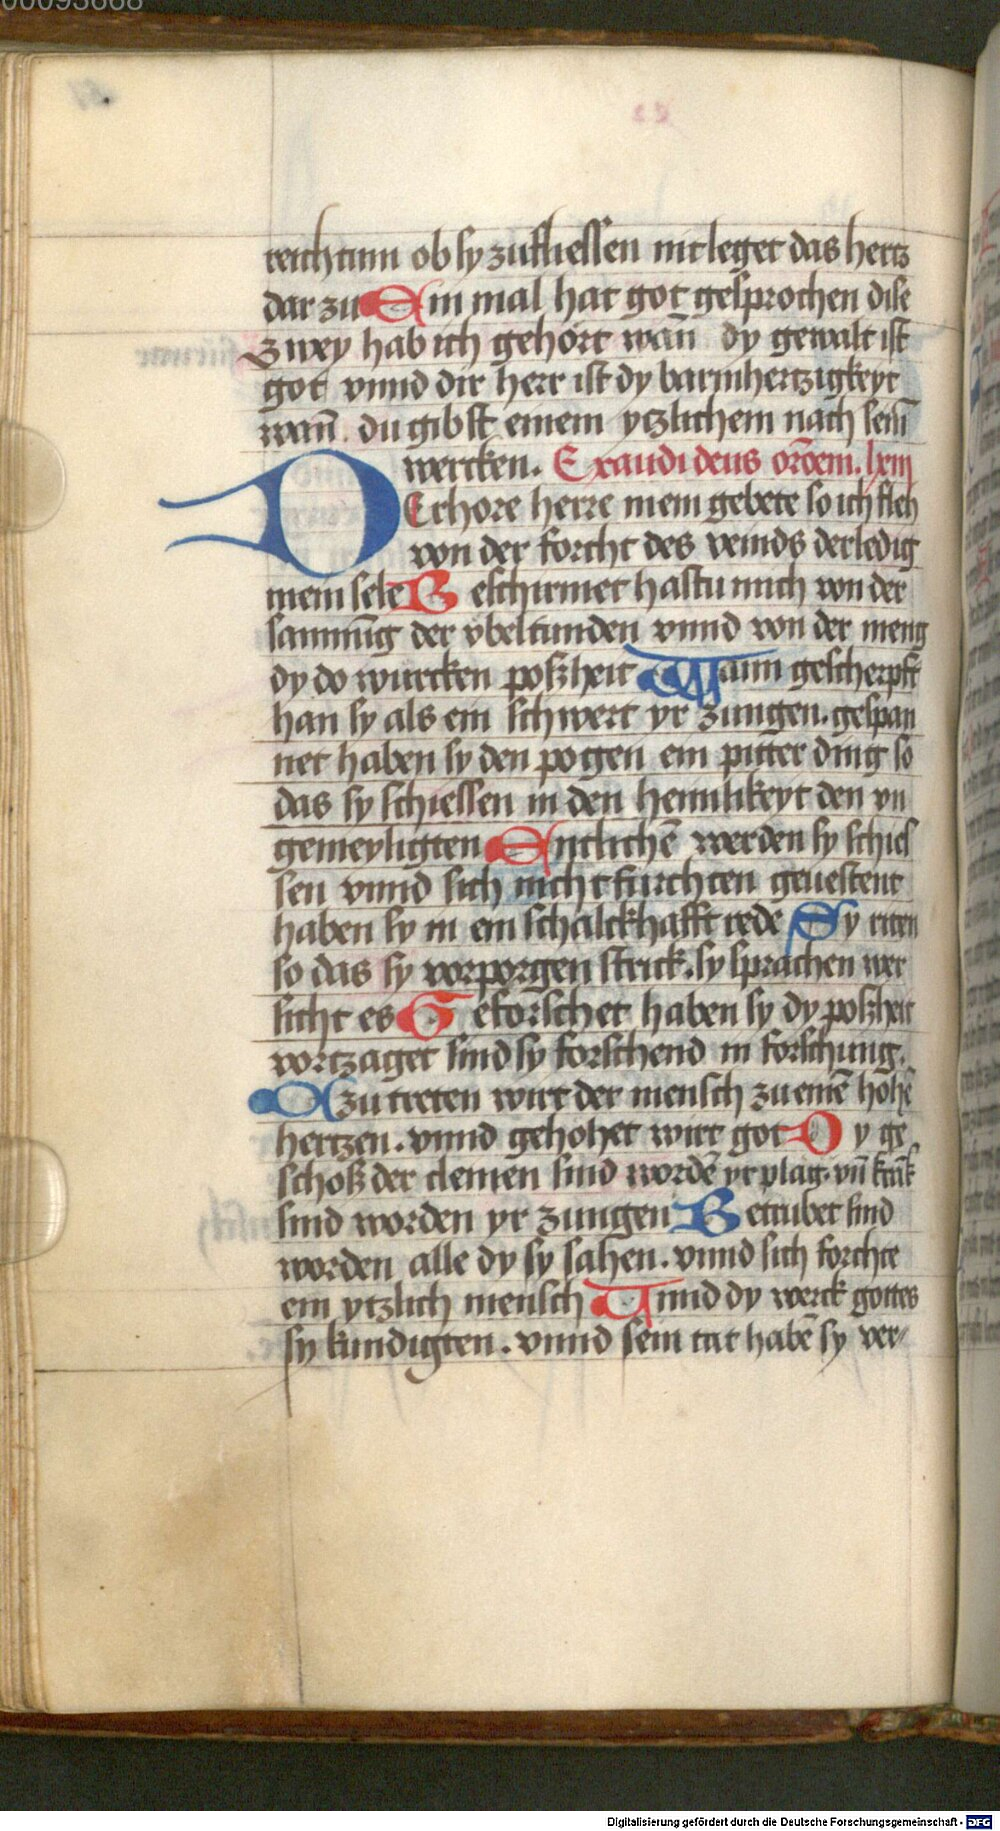 00093668
reichtum ob sy zufliessen nit leget das hertz
dar zu Ain mal hat got gesprochen dise
zwey hab ich gehört wan̄ dy gewalt ist
got vnnd dir herr ist dy barmhertzigkeyt
wan̄ du gibst einem ytzlichem nach sein̄
wercken. Exaudi deus orōem. lxiij
DErhore herre mein gebete so ich fleh
von der forcht des veinds derledig
mein sele Beschirmet hastu mich von der
samnūg der vbeltunden vnnd von der meng
dy do wurcken poßheit Wann gescherpft
han sy als ein schwert yr zungen. gespan
net haben sy den pogen ein pitter ding so
das sy schiessen in den heimlikeyt den vn
gemeyligten Entlichē werden sy schies
sen vnnd sich nicht furchten geuestent
haben sy in ein schalckhafft rede Sy riten
so das sy vorporgen strick. sy sprachen wer
sicht es Geforschet haben sy dy poßheit
vortzaget sind sy forschend in forschung.
Czu treten wirt der mensch zu einē hohē
hertzen. vnnd gehohet wirt got Dy ge
schoß der clemen sind wordē yr plag. vn̄ krāk
sind worden yr zungen Betrubet sind
worden alle dy sy sahen. vnnd sich forchte
ein ytzlich mensch Vnnd dy werck gottes
sy kundigten. vnnd sein tat habē sy ver-
Digitalisierung gefördert durch die Deutsche Forschungsgemeinschaft - DFG